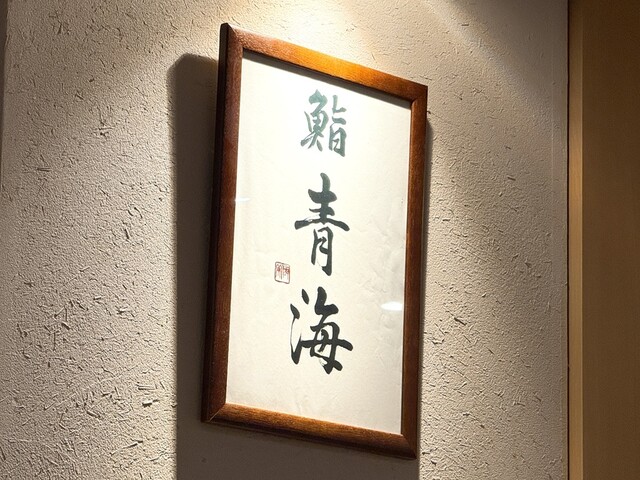 鮨
青海